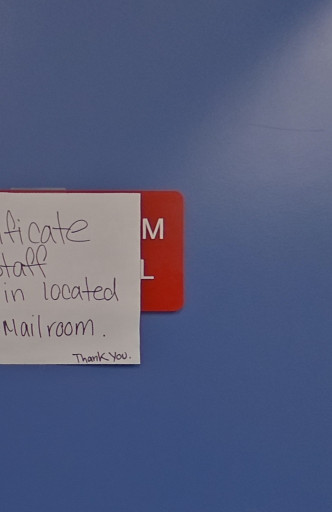 ficate
staff
in located
Mailroom.
Thank You.
M
L